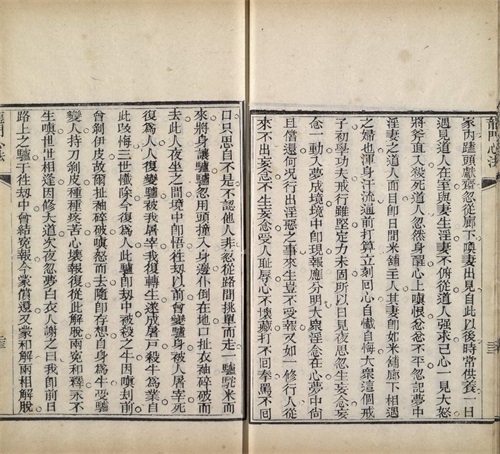 龍門心法
家內蹺頭獻齋忽從廊下喚妻出見自此以後時常供養一日
遇見道人在室與妻生淫妻不俯從道人強求己心一見大怒
將斧直入殺死道人忽然身醒心上嗔恨忿忿不平忽記夢中
淫妻之道人面目即日間米舖主人其妻即如米舖廊下相遇
之婦也渾身汗流過前打算立刻回心自懺自悔大衆這個戒
子初學功夫戒行雖堅定力未固所以日見夜思忽生妄念妄
念一動入夢成境境中即現報應分明大衆淫念在心夢中尚
且償還何況行出淫慾之事來生豈不受報又如一修行人從
來不出妄念不生妄念受人恥辱心不懷打不回拳罵不回
口只思自不是不認他人非忽從路間挑單而走一驢駝米而
來將身讓驢驢忽用頭撞入身邊仆倒在地口扯衣衲碎破而
去此人夜坐之間境中即悟往劫以前曾變驢身被人屠宰死
復為人人復變驢被我屠宰我復轉生遂成屠戶殺牛為業自
此改悔三世懺除今復為人此驢即劫中被殺之牛因嗔刦前
曾剝伊皮故爾扯衲碎破嗔怒而去隨即存想自身為牛受驢
變人持刀剝皮種種疼苦心壞報復從此解脫兩冤和釋永不
生嗔世世相逢因修大道次夜忽夢白衣人謝之曰我即前日
路上之驢于往劫中曾結冤報今蒙償還又蒙和解兩相解脫
龍門心法